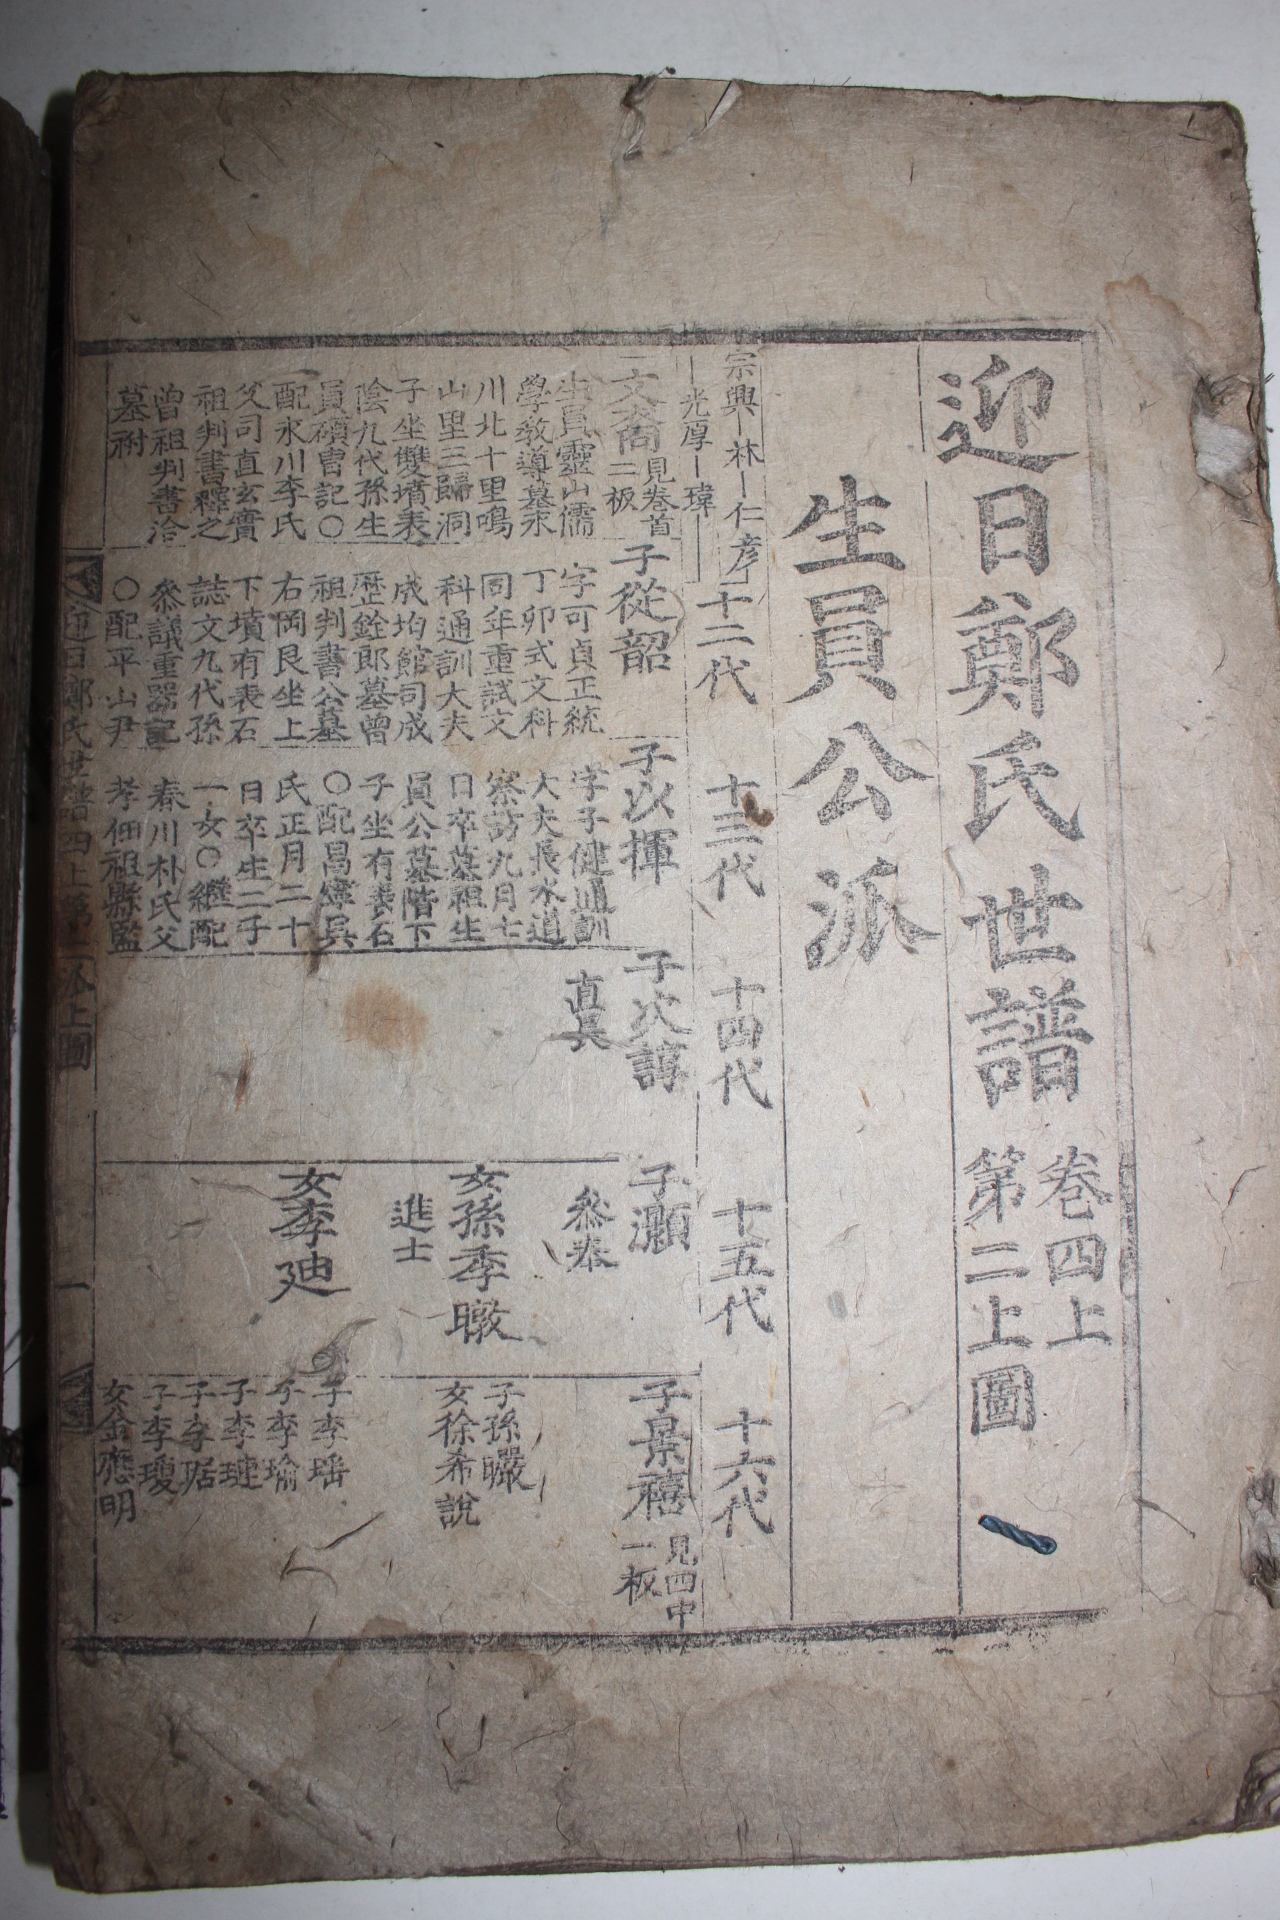 迎日鄭氏世譜 卷四上
第二上圖
生員公派
宗興－林－仁彦
－光厚－瑋－
十二代
十三代
十四代
十五代
十六代
文裔 見卷首
二板
生員靈山儒
學教導墓永
川北十里鳴
山里三歸洞
子坐雙墳表
陰九代孫生
員碩胄記〇
配永川李氏
父司直玄實
祖判書釋之
曾祖判書洽
墓祔
子從韶
字可貞正統
丁卯式文科
同年重試文
科通訓大夫
成均館司成
歷銓郎墓曾
祖判書公墓
右岡艮坐上
下墳有表石
誌文九代孫
叅議重器記
〇配平山尹
子以揮
字子健通訓
大夫長水道
察訪九月七
日卒墓祖生
員公墓階下
子坐有表石
〇配昌寧具
氏正月二十
日卒生二子
一女〇繼配
春川朴氏父
孝佃祖縣監
子次諄
直長
子灝
叅奉
女孫季暾
進士
女李廸
子景禧 見四中
一板
子孫曮
女徐希說
子李瑶
子李瑜
子李璉
子李琚
子李瓊
女金應明
迎日鄭氏世譜四上第二 上圖
一